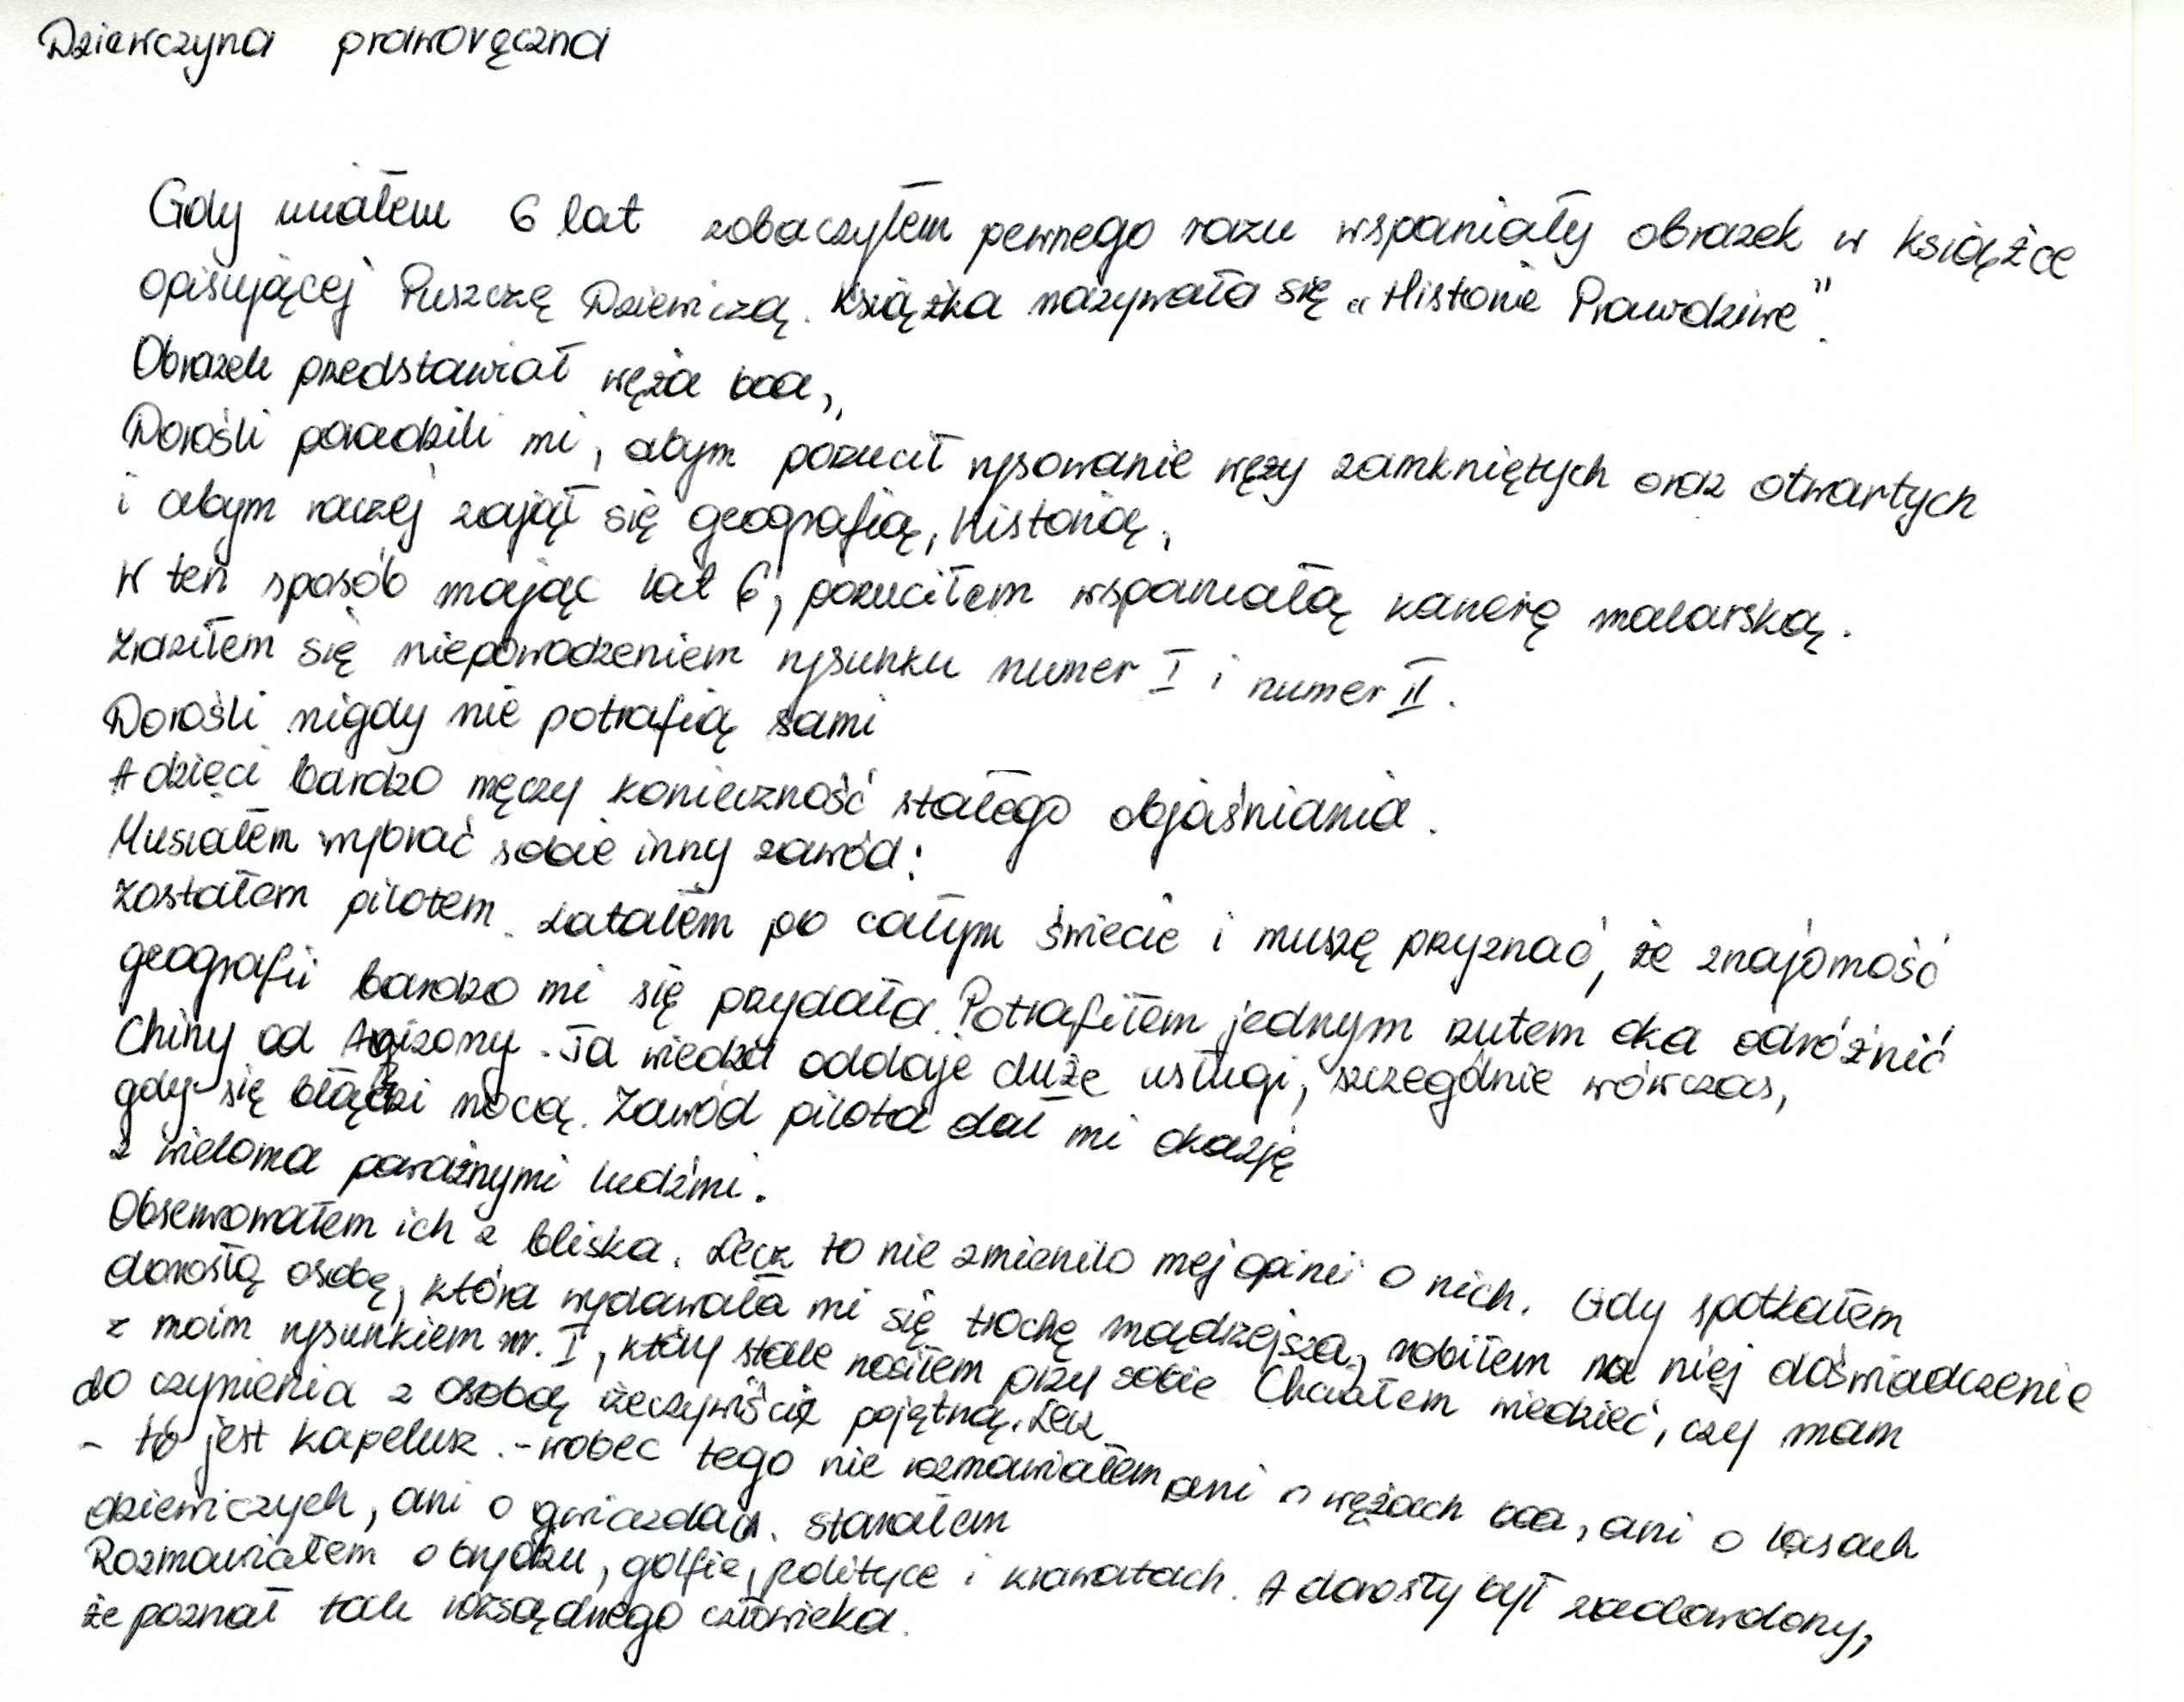 Dziewczyna praworęczna
Gdy miałem 6 lat zobaczyłem pewnego razu wspaniały obrazek w książce
opisującej Puszczę Dziewiczą. Książka nazywała się „Historie Prawdziwe".
Obrazek przedstawiał węża boa,
Dorośli poradzili mi, abym porzucił rysowanie węży zamkniętych oraz otwartych
i abym raczej zajął się geografią, historią,
W ten sposób mając lat 6, porzuciłem wspaniałą karierę malarską.
Zraziłem się niepowodzeniem rysunku numer I i numer II.
Dorośli nigdy nie potrafią sami
A dzieci bardzo męczy konieczność stałego objaśniania.
Musiałem wybrać sobie inny zawód:
zostałem pilotem. Latałem po całym świecie i muszę przyznać, że znajomość
geografii bardzo mi się przydała. Potrafiłem jednym rzutem oka odróżnić
Chiny od Arizony. Ta wiedza oddaje duże usługi, szczególnie wówczas,
gdy się błądzi nocą. Zawód pilota dał mi okazję
z wieloma poważnymi ludźmi.
Obserwowałem ich z bliska. Lecz to nie zmieniło mej opinii o nich. Gdy spotkałem
dorosłą osobę, która wydawała mi się trochę mądrzejsza, robiłem na niej doświadczenie
z moim rysunkiem nr. I, który stale nosiłem przy sobie Chciałem wiedzieć, czy mam
do czynienia z osobą rzeczywiście pojętną. Lecz
- to jest kapelusz. - wobec tego nie rozmawiałem ani o wężach boa, ani o lasach
dziewiczych, ani o gwiazdach. starałem
Rozmawiałem o brydżu, golfie, polityce i krawatach. A dorosły był zadowolony,
że poznał tak rozsądnego człowieka.